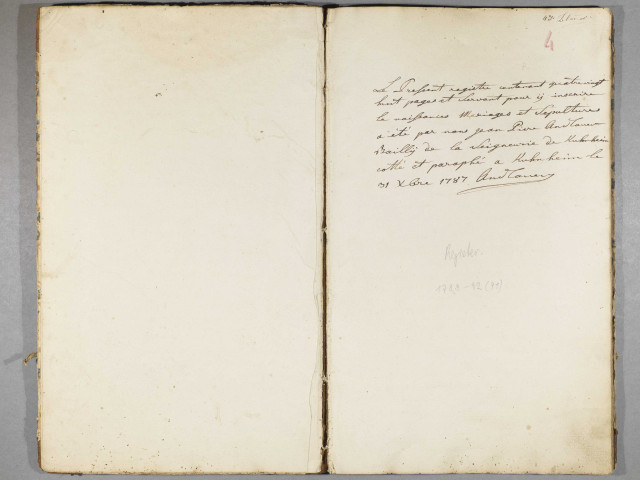 4
Le Pressent registre contenant quatrevingt
huit pages et servant pour ij inscrire
le naissances Mariages et Sepultures
a été par nous jean Pierre Andlauer
Bailly de la Seigneurie de Kuhnheim
cotté et paraphé a Kuhnheim le
31 Xbre 1787 Andlauer
Register